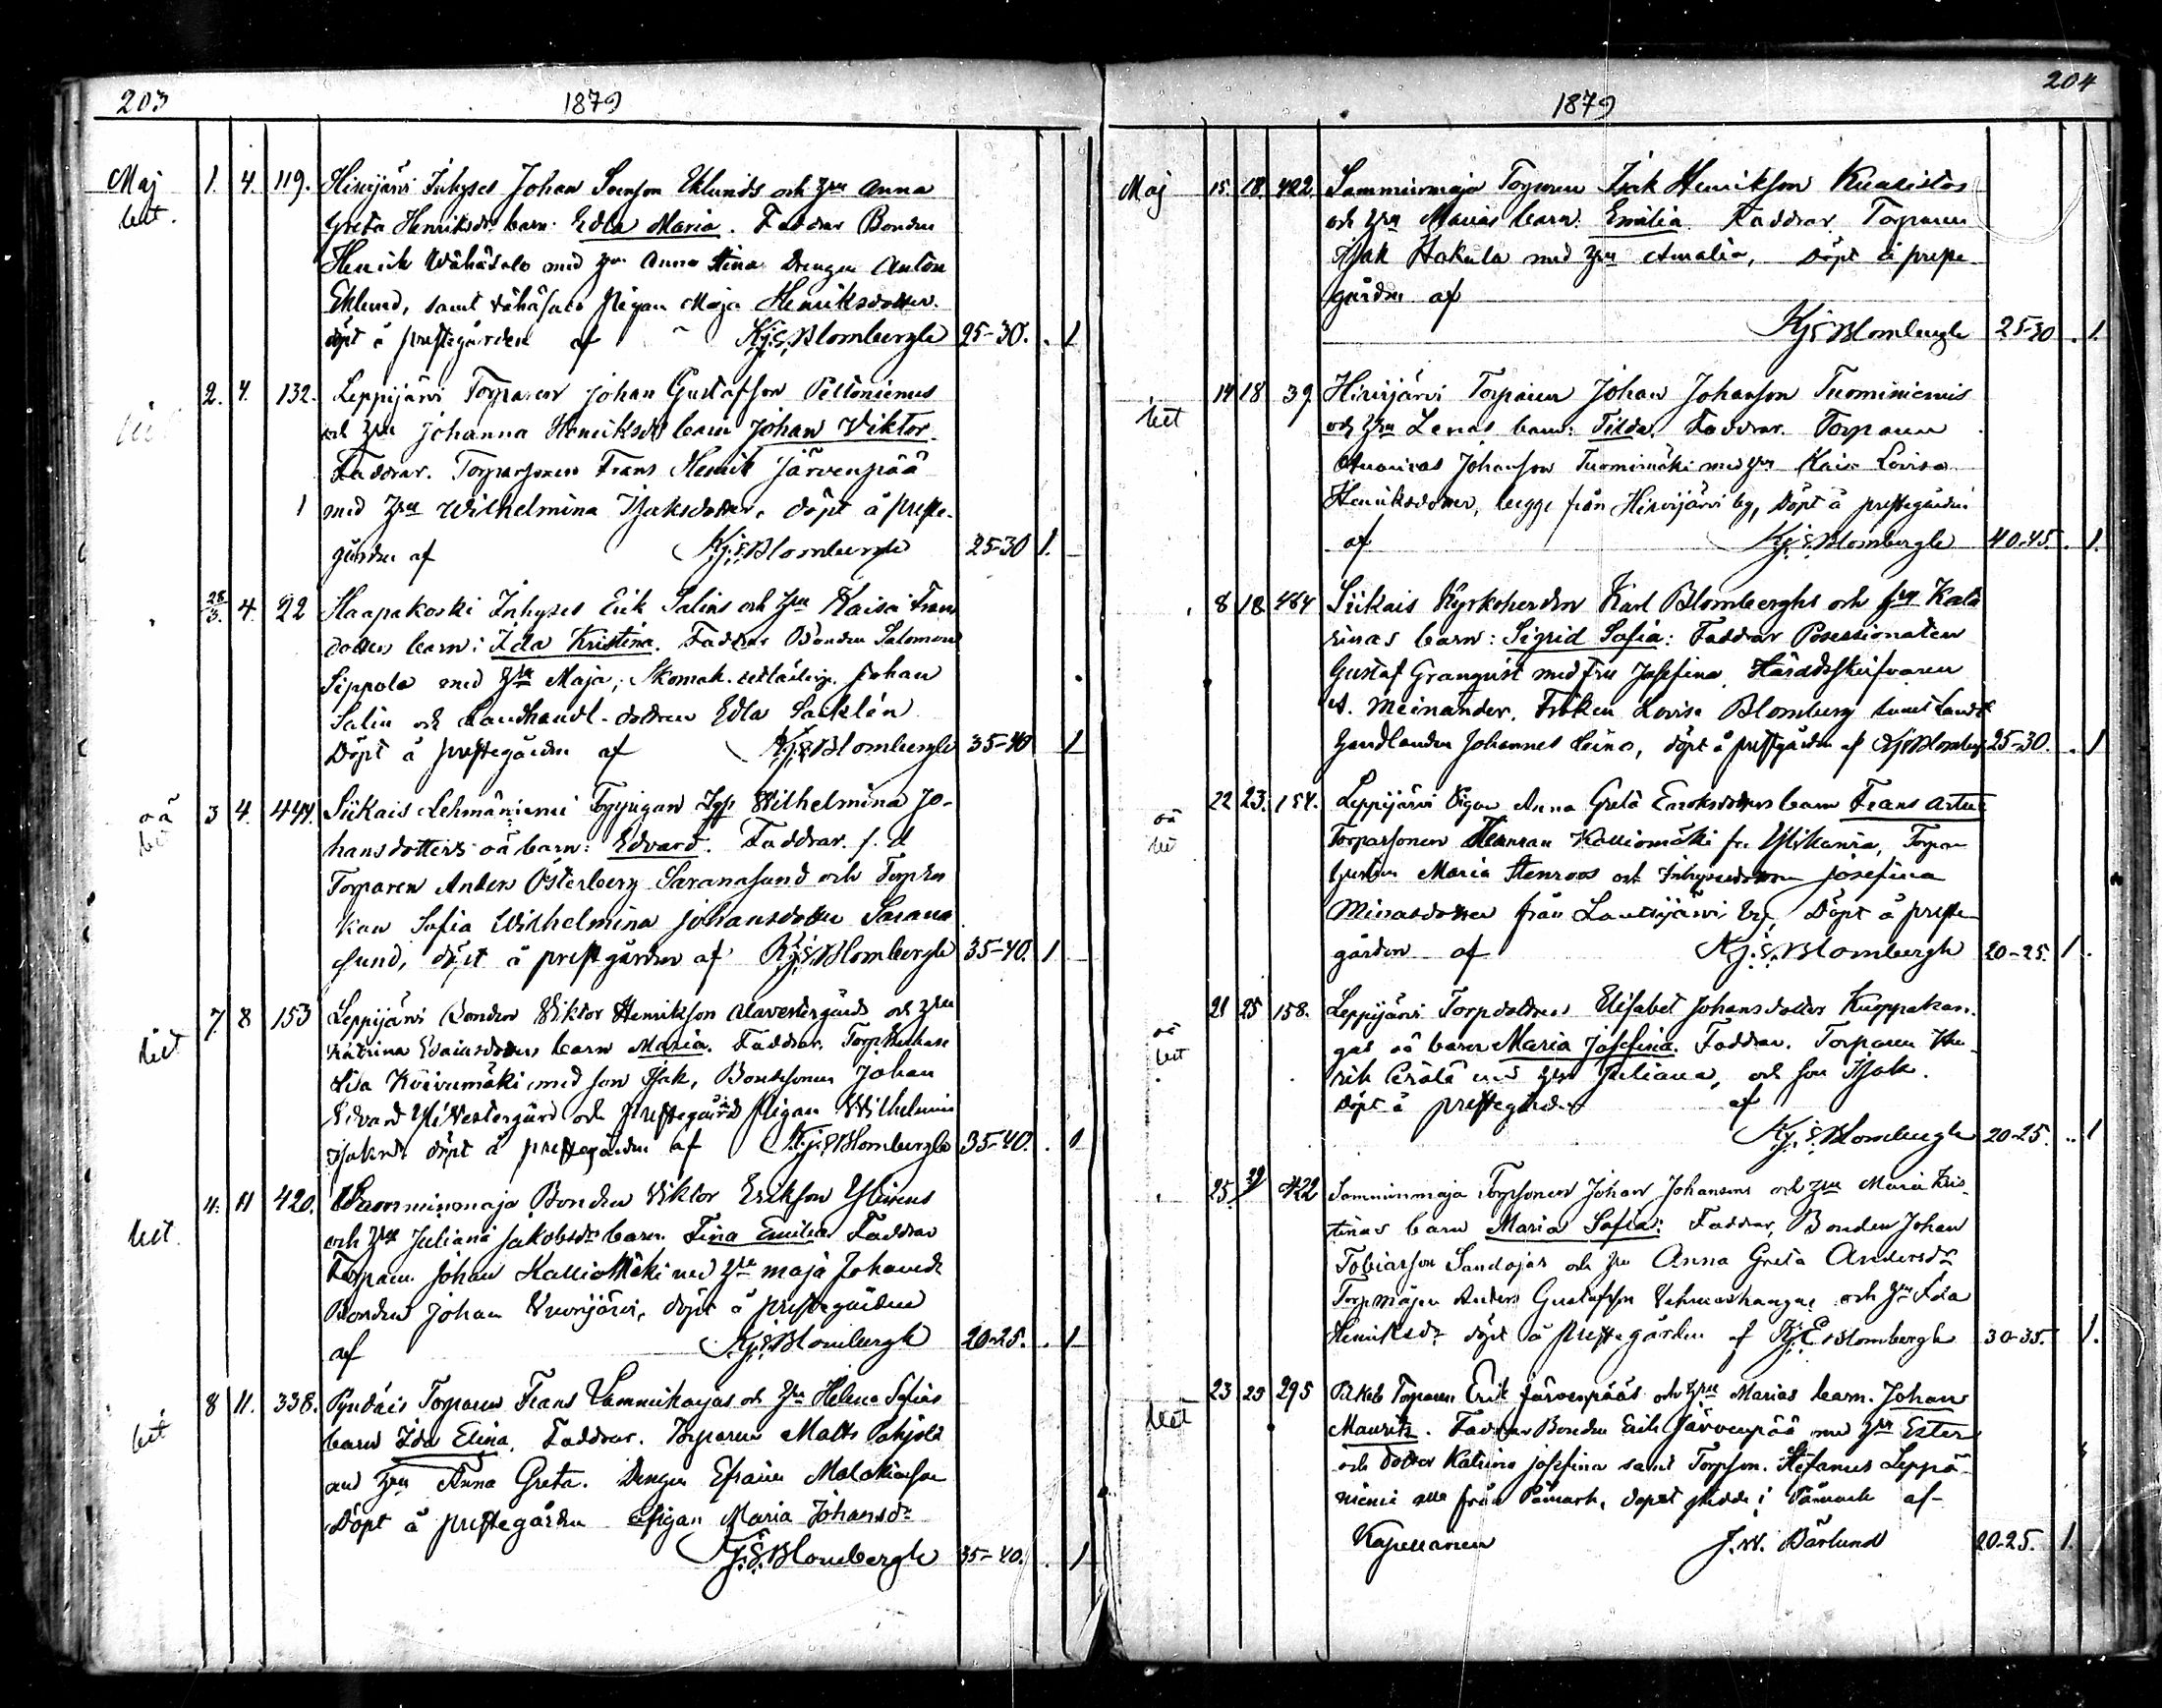 203
1879
Maj 1. 4. 119. Hirvijärvi Inhyses Johan Svenson Eklunds och hru Anna
bet. Greta Henriksdr barn: Edla Maria. Faddrar Bonden
Henrik Wähäsalo med hru Anna Stina Drengen Anton
Eklund, samt Vähäsalo pigan Maja Henriksdotter.
döpt å prestegården af Kj. E. Blombergh 25-30. 1
2. 4. 132. Leppijärvi Torparen Johan Gustafson Peltoniemis
och hru Johanna Henriksdrs barn Johan Viktor.
Faddrar. Torparsonen Frans Henrik Järvenpää
1 med hru Wilhelmina Isaksdotter, döpt å preste-
gården af Kj. E. Blombergh 25-30 1.
28/3. 4. 22 Haapakoski Inhyses Erik Salins och hru Kaisa Frans
dotters barn: Ida Kristina. Faddrar Bonden Salomon
Sippola med hru Maja, Skomak. Johan
Salin och Landhandl. dottren Edla Sacklén
Döpt å prestegården af Kj. E. Blombergh 35-40 1
oä 3 4. 444. Siikais Lehmäniemi Wilhelmina Jo-
hansdotters oä barn: Edvard. Faddrar. f. d
Torparen Anders Österberg Saranasund och
Sofia Wilhelmina Johansdotter Sarana
sund, döpt å prestgården af Kj. E. Blombergh 35-40. 1
bet 7 8 153 Leppijärvi Bonden Viktor Henrikson Alavestergårds och hru
Katrina barn Maria. Faddrar.
Koivumäki med son Isak, Bondesonen Johan
Edvard Ylivestergård och prestegårds pigan Wilhelmin
döpt å prestegården af Kj. E. Blombergh 35-40. 1
bet. 11. 11 420. Samminmaja Bonden Viktor Erikson
och hru Juliana Jakobsdrs barn. Fina Emilia Faddrar
Torparen Johan Kalliomäki med hru Maja Johansdr
Bonden Johan Vuorijärvi, döpt å prestegården
af Kj. E. Blombergh 20-25. 1
bet 8 11. 338. Torparen Frans Lamminkarjas och hru Helena Sofias
barn Ida Elina. Faddrar. Torparen Matts Pohjola
med hru Anna Greta. Drengen Efraim
Döpt å prestegården Pigan Maria Johansdr
Kj. E. Blombergh 35-40. 1
204
1879
Maj 15. 18. 422. Samminmaja Torparen Isak Henrikson Kuusistos
och hru Marias barn. Emilia. Faddrar. Torparen
Isak Hakula med hru Amalia, Döpt å preste-
gården af
Kj E Blombergh 25-30 1.
bet 14 18 39. Hirvijärvi Torparen Johan Johanson Tuominiemis
och hru Lenas barn: Tilda. Faddrar. Torparen
Johanson Tuomimäki med hru Kaisa Lovisa
Henriksdotter, begge från Hirvijärvi by, Döpt å prestegården
af Kj. E. Blombergh 40-45. 1.
8 18 464 Siikais Kyrkoherden Karl Blomberghs och fru Kata
rinas barn: Sigrid Sofia: Faddrar Possessionaten
Gustaf Granqvist med fru Josefina, Häradsskrifvaren
A. Meinander. Fröken Lovisa Blomberg samt Lands
handlanden Johannes Leino, döpt å prestgården af Kj E Blombergh 25-30. 1
oä bet 22 23. 154. Leppijärvi Pigan Anna Greta Enoksdotters barn Frans Artur
Torparsonen Herman Kalliomäki fr.
Maria Stenroos och Josefina
från Lautjärvi by, Döpt å preste-
gården af Kj. E. Blombergh 20-25. 1.
oä bet 21 25 158. Leppijärvi Elisabet Johansdotter Kuppakan-
gas oä barn Maria Josefina. Faddrar. Torparen Hen-
rik med hru Juliana, och son Isak.
Döpt å prestegården af
Kj. E. Blombergh 20-25. 1
25. 422 Samminmaja Torpsonen Johan Johansons och hru Maria Kris-
tinas barn Maria Sofia: Faddrar, Bonden Johan
Tobiasson Sandojas och hru Anna Greta Andersdr
Anders Gustafson och hru Ida
Henriksdr döpt å prestegården af Kj. E. Blombergh 30-35. 1.
bet 23 25 295 Torparen Erik Järvenpääs och hru Marias barn. Johan
Mauritz. Faddrar Bonden Erik Järvenpää med hru Ester
och dotter Katrina Josefina samt Torpson. Stefanus Leppä-
niemi alla från Påmark, dopet skedde i Påmark af
Kapellanen J. W. Bärlund 20-25. 1.